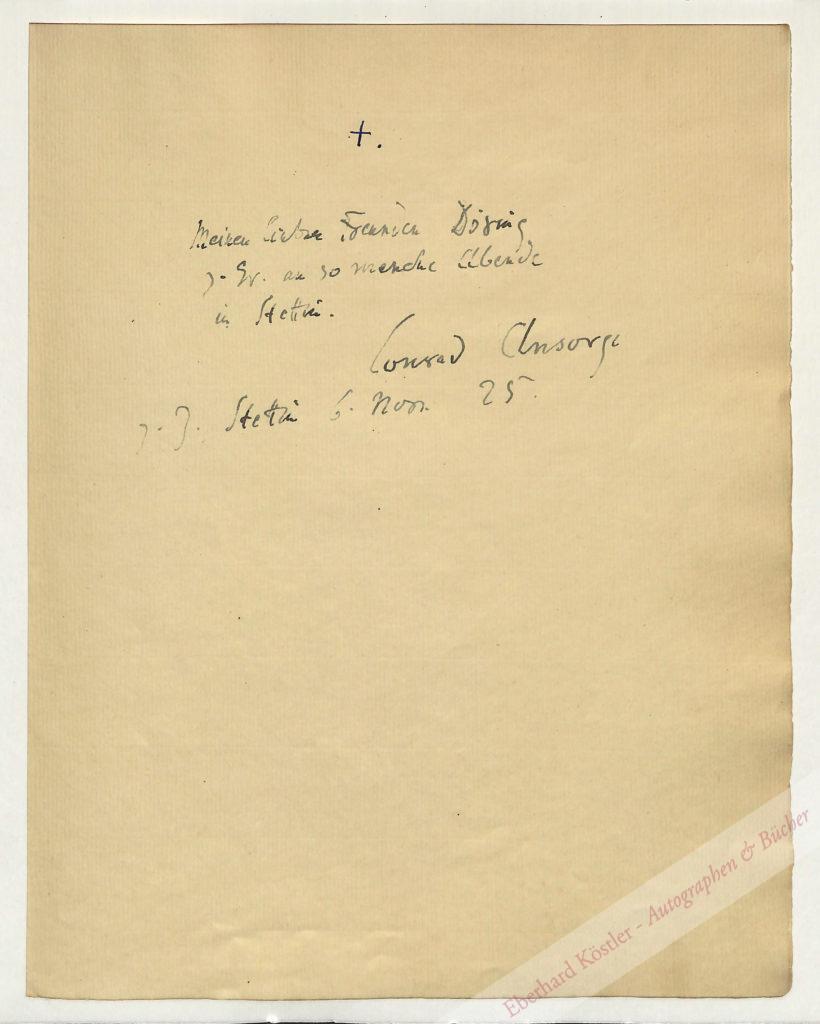 +.
Meinen lieben Freunden Döring
z. Er. an so manche Abende
in Stettin.
Conrad Ansorge
z. Z. Stettin 6. Nov. 25.
Eberhard Köstler - Autographen & Bücher